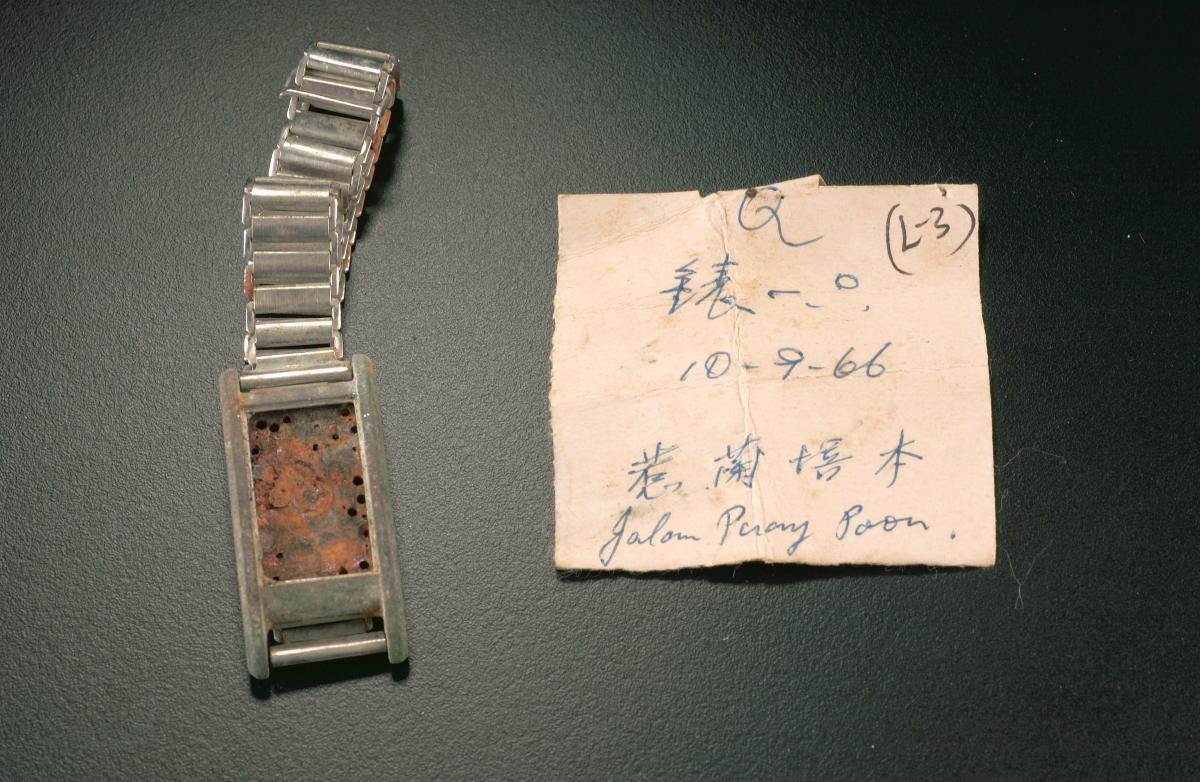 Q (L-3)
錶一只.
10-9-66
惹蘭培本
Jalan Puay Poon.